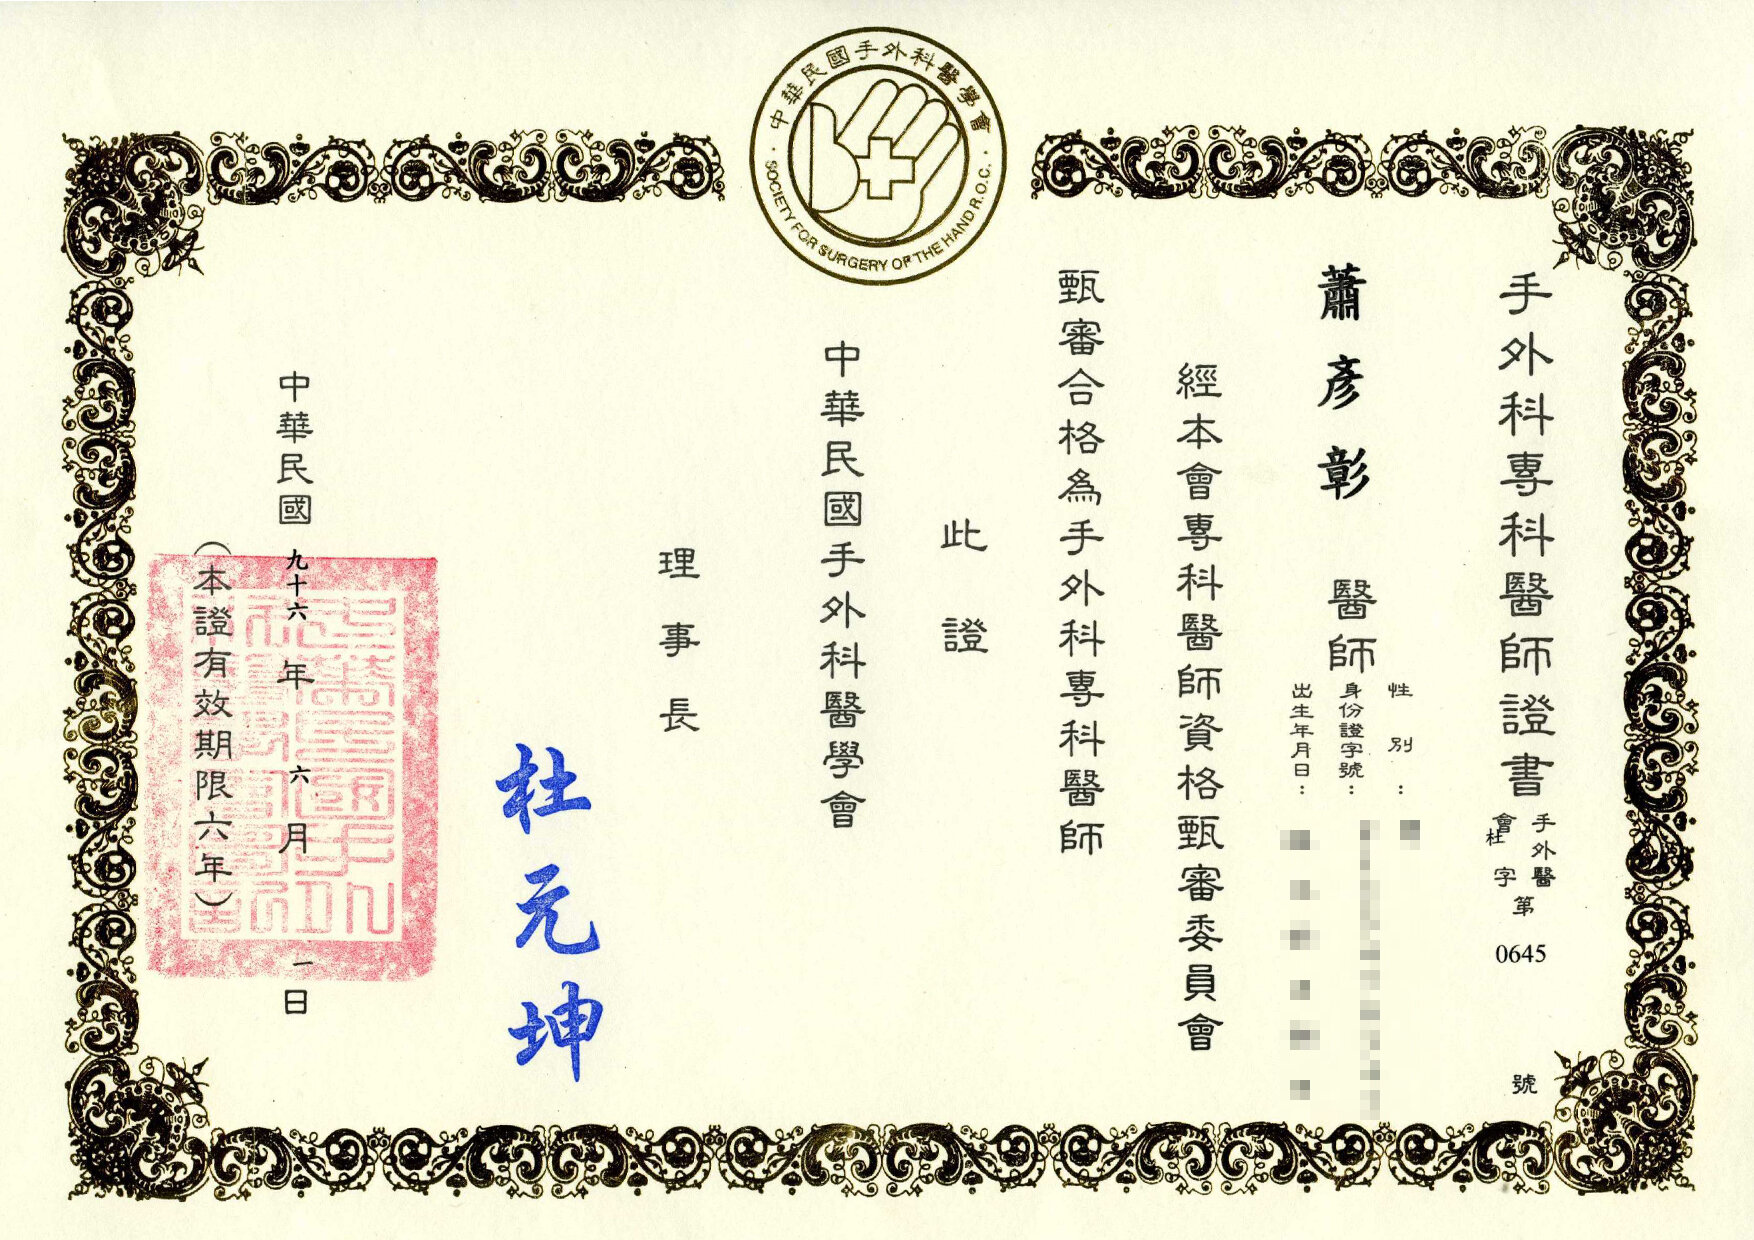 中華民國手外科醫學會
SOCIETY FOR SURGERY OF THE HAND R.O.C.
手外科專科醫師證書
手外醫
會杜字
第
0645
號
蕭彥彰 醫師
性別：
身份證字號：
出生年月日：
經本會專科醫師資格甄審委員會
甄審合格為手外科專科醫師
此證
中華民國手外科醫學會
理事長
杜元坤
中華民國九十六年六月一日
（本證有效期限六年）